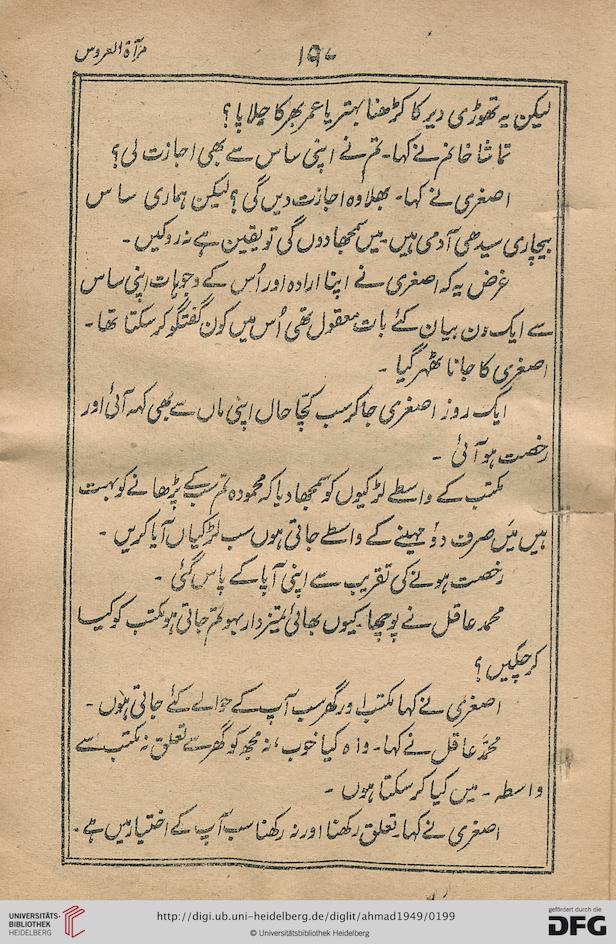 مرآۃ العروس
۱۹۷
لیکن یہ تھوڑی دیر کا کڑھنا بہتر یا عمر بھر کا جلاپا؟
تماشا خانم نے کہا۔ تم نے اپنی ساس سے بھی اجازت لی؟
اصغری نے کہا۔ بھلا وہ اجازت دیں گی؟ لیکن ہماری ساس
بیچاری سیدھی آدمی ہیں۔ میں سمجھا دوں گی تو یقین ہے نہ روکیں۔
غرض یہ کہ اصغری نے اپنا ارادہ اور اُس کے وجوہات اپنی ساس
سے ایک دن بیان کئے بات معقول تھی اُس میں کون گفتگو کر سکتا تھا۔
اصغری کا جانا ٹھہر گیا۔
ایک روز اصغری جا کر سب کچا حال اپنی ماں سے بھی کہہ آئی اور
رخصت ہو آئی۔
مکتب کے واسطے لڑکیوں کو سمجھا دیا کہ محمودہ تم سب کے پڑھانے کو بہت
ہیں میں صرف دو مہینے کے واسطے جاتی ہوں سب لڑکیاں آیا کریں۔
رخصت ہونے کی تقریب سے اپنی آپا کے پاس گئی۔
محمد عاقل نے پوچھا۔ کیوں بھائی تمیزدار بہو تم جاتی ہو مکتب کو کیا
کر چکیں؟
اصغری نے کہا مکتب اور گھر سب آپ کے حوالے کئے جاتی ہوں۔
محمد عاقل نے کہا۔ واہ کیا خوب، نہ مجھ کو گھر سے تعلق نہ مکتب سے
واسطہ۔ میں کیا کر سکتا ہوں۔
اصغری نے کہا۔ تعلق رکھنا اور نہ رکھنا سب آپ کے اختیار میں ہے۔
UNIVERSITÄTS-
BIBLIOTHEK
HEIDELBERG
http://digi.ub.uni-heidelberg.de/diglit/ahmad1949/0199
© Universitätsbibliothek Heidelberg
gefördert durch die
DFG